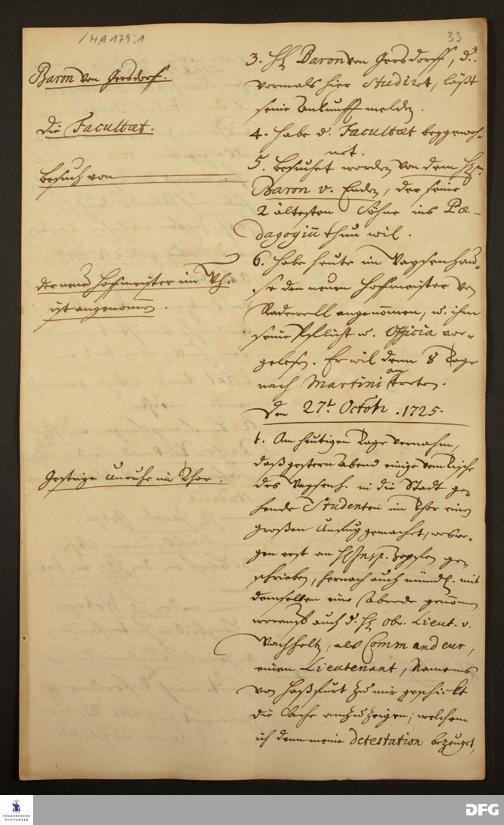 /HA 179:1
33
Baron von Gersdorf.
die Facultaet.
besuch von
der neue Hoffmeister im Wh.
ist angenommen.
Gestrige Unruhe im Thor.
3. H. Baron von Gersdorff, d.
vormals hier studiret, läßt
seine Ankunfft melden.
4. habe d. Facultaet beygewoh-
net.
5. besuchet worden von dem Hn.
Baron v. Ende, der seine
2 ältesten Söhne ins Pae-
dagogium thun wil.
6. habe heute im Waysenhau-
se den neuen Hoffmeister von
Radewell angenommen, u. ihm
seine Pflicht u. Officia vor-
gelesen. Er wil denn 8 Tage
nach Martini antreten.
Den 27.t Octobr. 1725.
1. Am heutigen Tage vernahm,
daß gestern abend einige vom Tische
des Waysenh. in die Stadt ge-
hende Studenten im Thor einen
großen Unfug gemachet, weswe-
gen erst an H. Insp. geschrieben, hernach auch mündl. mit
demselben eine Abrede genommen
worauf auch d. H. Ob. Lieut. v.
Wachholtz, als Commandeur,
einen Lieutenant, Namens
von Haßfurt zu mir geschickt
die Sache anzuzeigen; welchem
ich denn meine detestation bezeuget,
FRANCKESCHE STIFTUNGEN
DFG